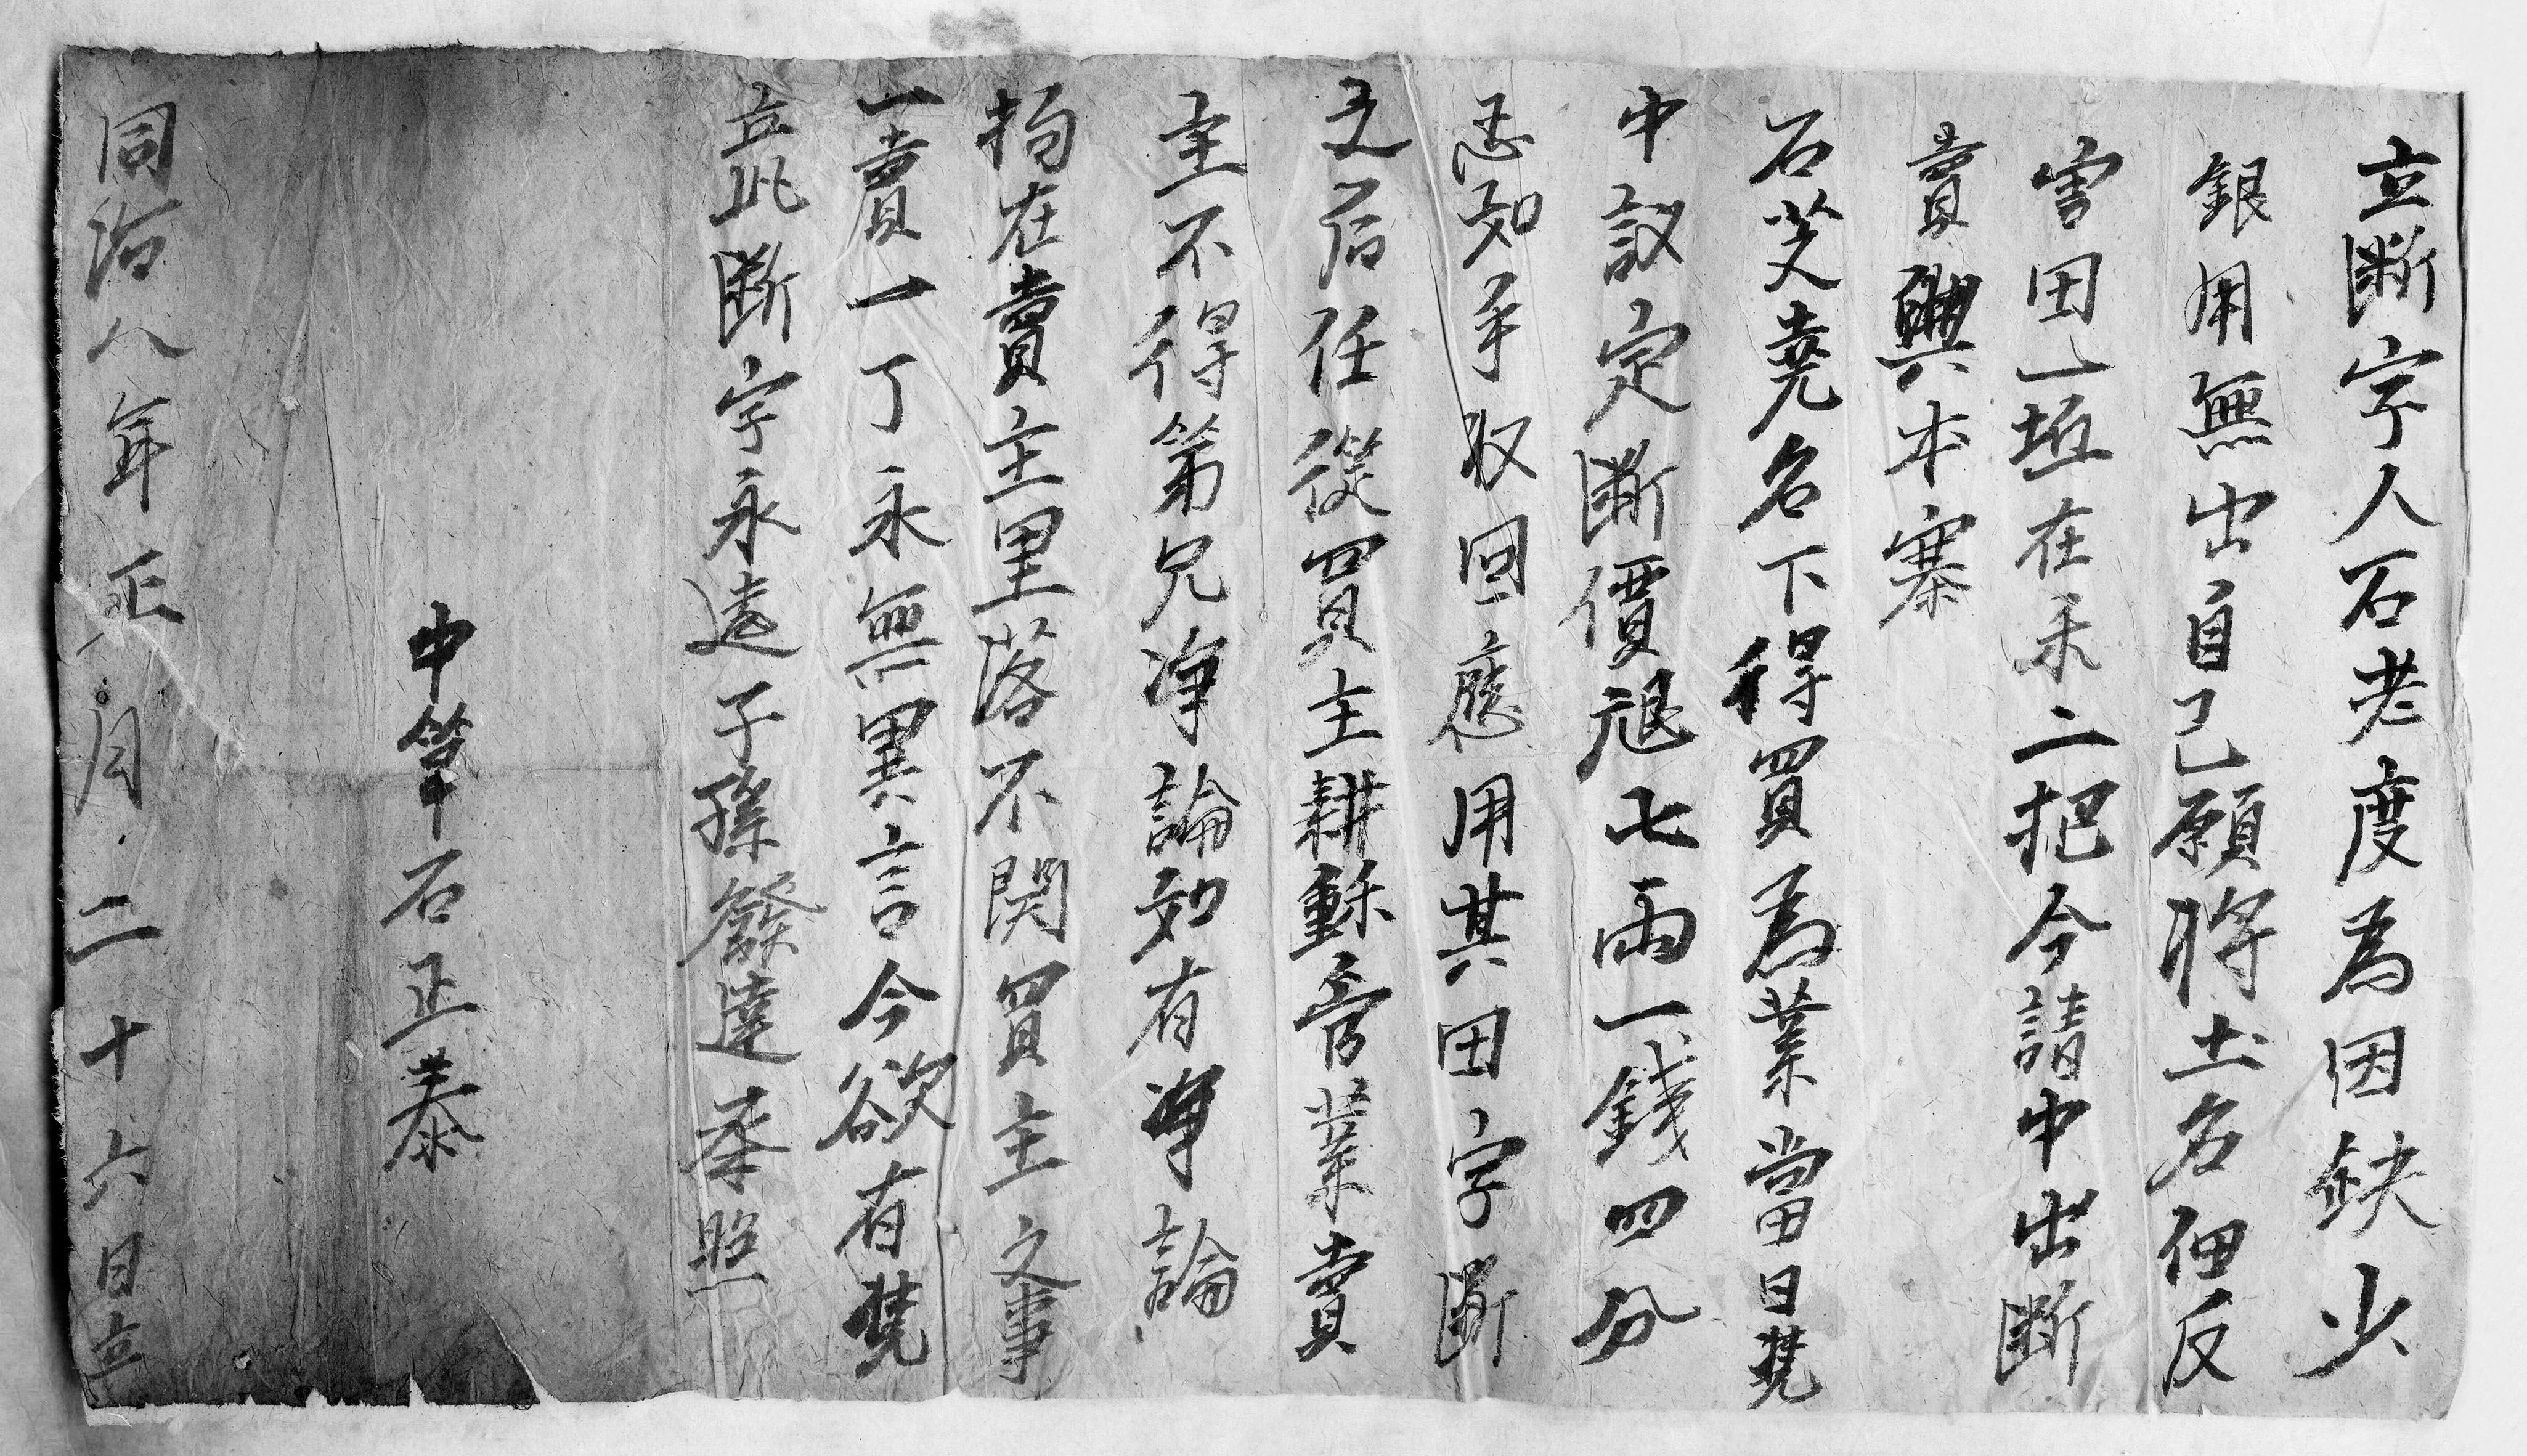 立斷字人石老度為因缺少
銀用無出自己願將土名佃反
田一坵在禾二把今請中出斷
賣與本寨
石芝堯名下得買為業當日凭
中議定斷價艮七両一錢四分
如手收回應用其田字斷
之后任從買主耕種管業賣
主不得第兄净論如有净論
拘在賣主里落不関買主之事
一賣一了永無異言今欲有凭
立此斷字永遠子孫發達承照
中筆石正泰
同治八年正月二十六日立